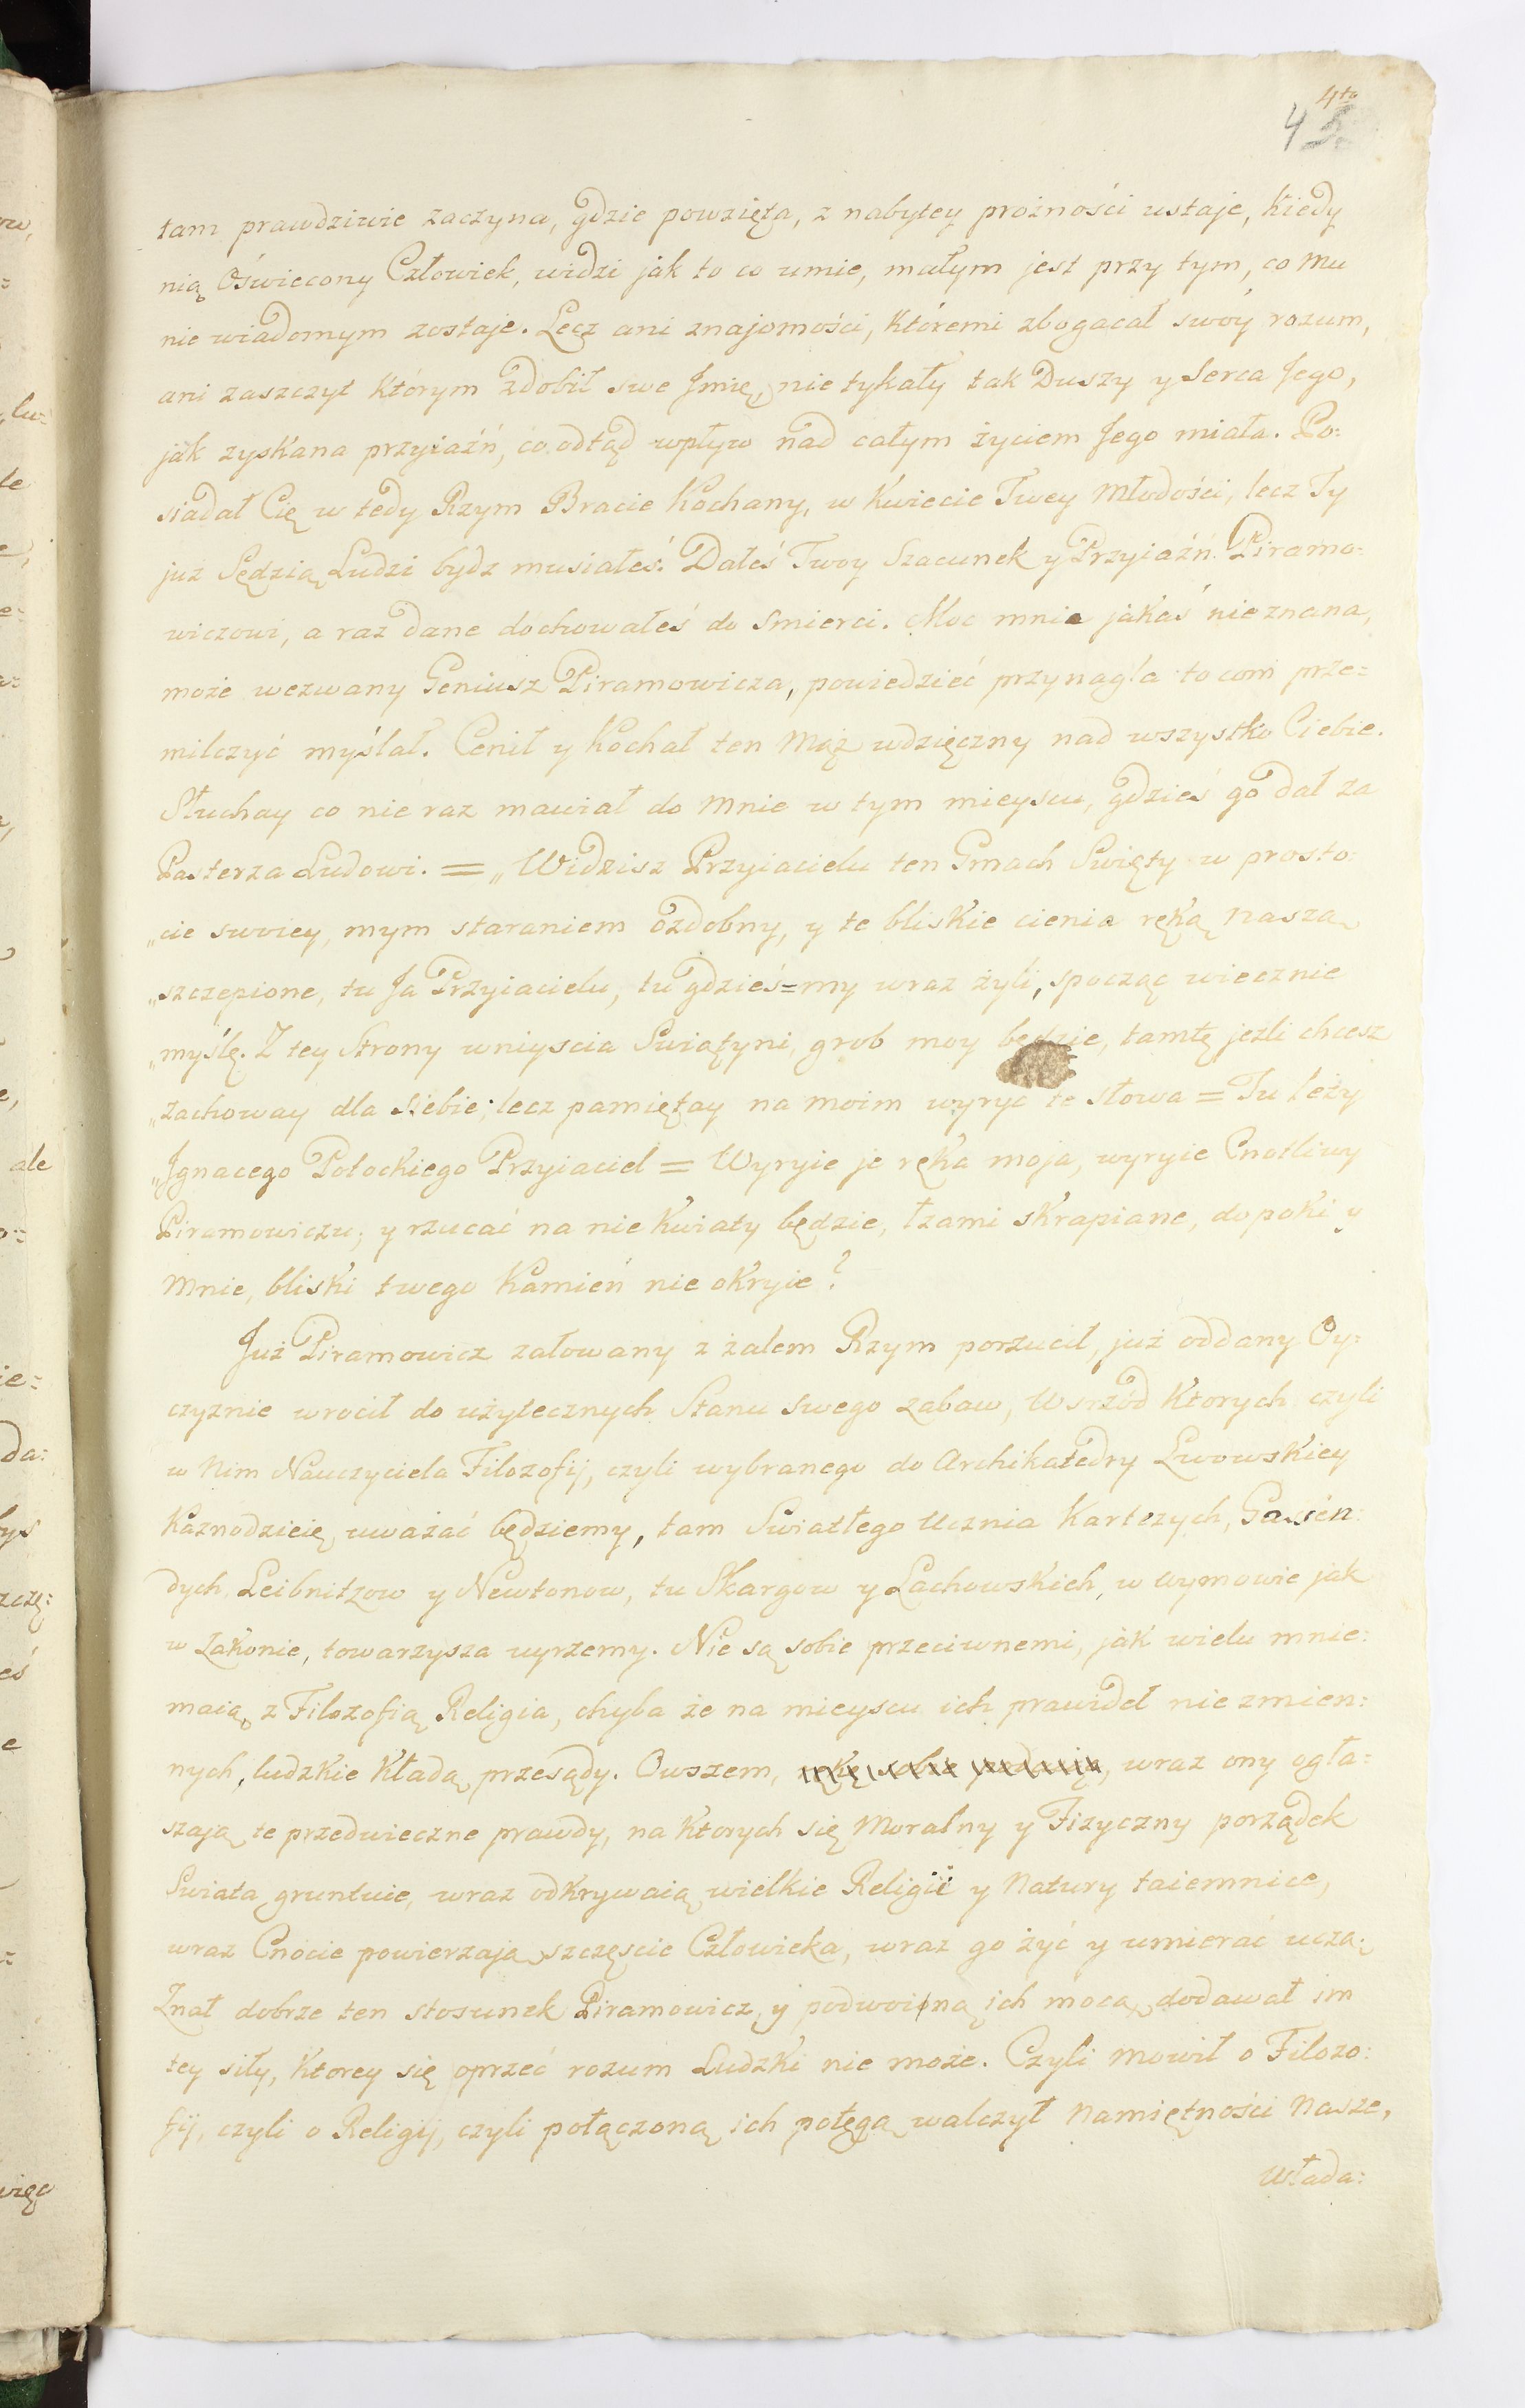 4to
43
tam prawdziwie zaczyna, gdzie powzięta, z nabytey prożności ustaje, kiedy
nią Oświecony Człowiek, widzi jak to co umie, małym jest przy tym, co mu
nie wiadomym zostaje. Lecz ani znajomości, któremi zbogacał swóy rozum,
ani zaszczyt którym zdobił swe Jmię, nie tykały tak Duszy y Serca Jego,
jak zyskana przyiaźń, co odtąd wpływ nad całym życiem Jego miała. Po:
siadał Cię w tedy Rzym Bracie Kochany, w Kwiecie Twey Młodości, lecz Ty
już Sędzią Ludzi bydz musiałeś. Dałeś Twoy Szacunek y Przyiaźń Piramo:
wiczowi, a raz dane dochowałeś do Smierci. Moc mnie jakaś nie znana,
może wezwany Geniusz Piramowicza, powiedzieć przynagla to com prze=
milczyć myślał. Cenił y Kochał ten Mąż wdzięczny nad wszystko Ciebie.
Słuchay co nie raz mawiał do mnie w tym mieyscu, gdzieś go dał za
Pasterza Ludowi. = „Widzisz Przyiacielu ten Gmach Swięty w prosto:
„cie swoiey, mym staraniem ozdobny, y te bliskie cienia ręką naszą
„szczepione, tu Ja Przyiacielu, tu gdzieś=my wraz żyli, spocząc wiecznie
„myślę. Z tey Strony wniyscia Swiątyni, grob moy będzie, tamtę jeżli chcesz
„zachoway dla siebie; lecz pamiętay na moim wyryć te słowa = Tu leży
„Jgnacego Potockiego Przyiaciel = Wyryie je ręka moja, wyryie Cnotliwy
Piramowiczu; y rzucać na nie Kwiaty będzie, łzami skrapiane, dopoki y
mnie, bliski twego Kamień nie okryie?
Już Piramowicz załowany z żalem Rzym porzucił, już oddany Oy:
czyznie wrocił do użytecznych Stanu swego zabaw, Wsrzód Ktorych czyli
w Nim Nauczyciela Filozofij, czyli wybranego do Archikatedry Lwowskiey
Kaznodzieię uważać będziemy, tam Swiatłego Ucznia Kartezych, Gassen:
dych Leibnitzow y Newtonow, tu Skargow y Lachowskich, w wymowie jak
w Zakonie, towarzysza uyrzemy. Nie są sobie przeciwnemi, jak wielu mnie:
maią, z Filozofią Religia, chyba że na mieyscu ich prawideł nie zmien:
nych, ludzkie kładą przesądy. Owszem, wraz ony ogła:
szają te przedwieczne prawdy, na Ktorych się Moralny y Fizyczny porządek
Swiata gruntuie, wraz odkrywaią wielkie Religii y Natury taiemnice,
wraz Cnocie powierzają szczęscie Człowieka, wraz go żyć y umierać uczą.
Znał dobrze ten stosunek Piramowicz y podwoioną ich mocą, dodawał im
tey siły, ktorey się oprzeć rozum Ludzki nie może. Czyli mowił o Filozo:
fij, czyli o Religij, czyli połączoną ich potęgą walczył namiętności nasze,
Włada: